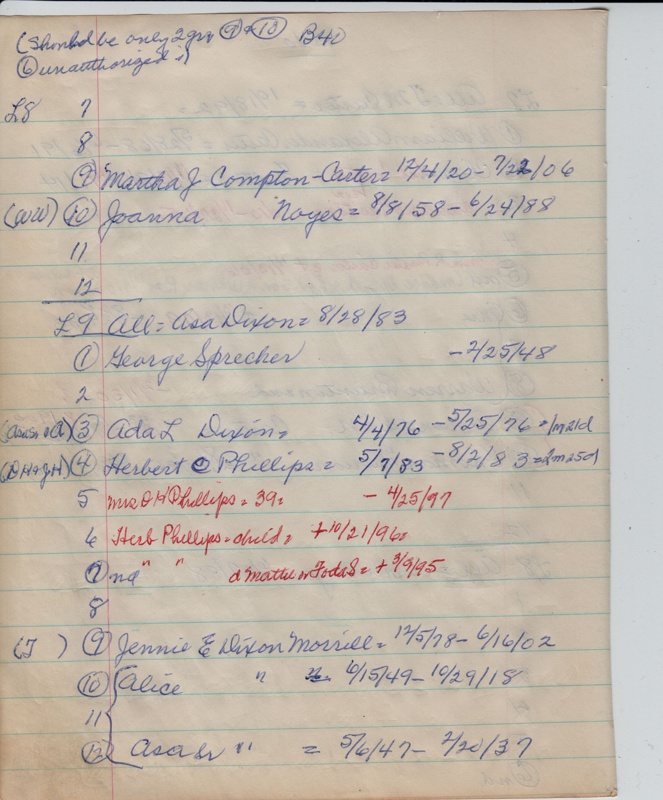 (Should be only 2 gr ⑨ + ⑩ B40
⑥ unauthorized
L8 7
8
⑨ Martha J Compton-Carter = 12/4/20 - 7/22/06
(Will) ⑩ Joanna Noyes = 8/8/58 - 6/24/88
11
12
L9 All = Asa Dixon = 8/28/83
① George Sprecher - 2/25/48
2
③ Ada L Dixon = 4/4/76 - 5/25/76 = 1m21d
(DH+JH) ④ Herbert O Phillips = 5/7/83 - 8/2/83 = 2m25d
5 Mrs D H Phillips = 39 = - 4/25/97
6 Herb Phillips = child = + 10/21/96 =
⑦ nd " " d Mattie = + 3/9/95
8
(J ) ⑨ Jennie E Dixon Morrill = 12/5/78 - 6/16/02
⑩ Alice " 6/15/49 - 10/29/18
11
⑫ Asa Sr " = 5/6/47 - 2/20/37